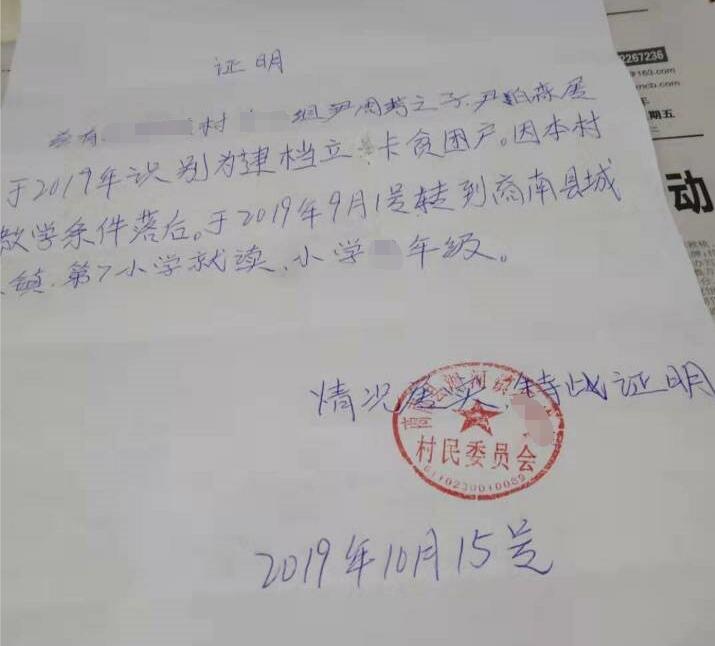 证明
兹有 村 组尹周芳之子尹铂霖属
于2019年识别为建档立 卡贫困户。因本村
教学条件落后。于2019年9月1号转到商南县城
镇.第7小学就读、小学 年级。
情况属实,特此证明
村民委员会
2019年10月15号
2267236
@163.com
mcb.com
年
期五
动